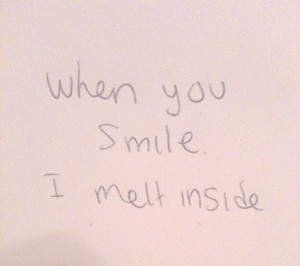 when you
Smile.
I melt inside